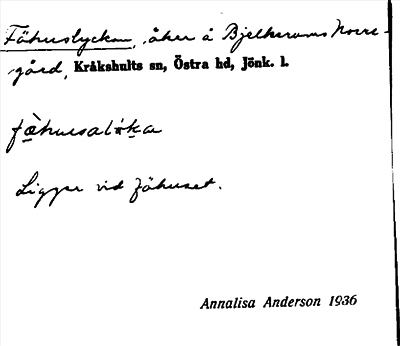 Fähuslyckan, åker å Bjelkerums Norre-
gård, Kråkshults sn, Östra hd, Jönk. l.
Ligger vid fähuset.
Annalisa Anderson 1936